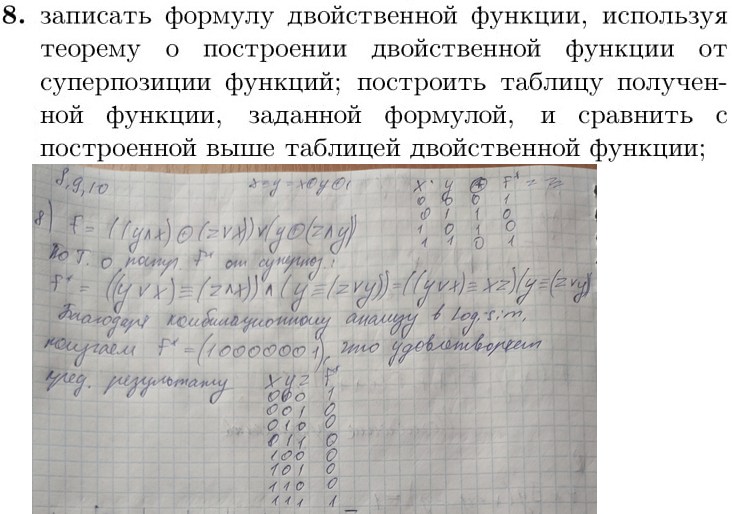 8. записать формулу двойственной функции, используя
теорему о построении двойственной функции от
суперпозиции функций; построить таблицу получен-
ной функции, заданной формулой, и сравнить с
построенной выше таблицей двойственной функции;
8,9,10
x≡y = x⊕y⊕1
x y ⊕ F* = ≡
0 0 0 1
0 1 1 0
1 0 1 0
1 1 0 1
8) F = ((y∧x)⊕(z∨x))∨(y⊕(z∧y))
По т. о постр. F* от суперпоз.:
F* = ((y∨x)≡(z∧x))∧(y≡(z∨y))=((y∨x)≡xz)(y≡(z∨y))
Благодаря комбинационному анализу в Logisim,
получаем F* = (10000001), что удовлетворяет
пред. результату
x y z F*
0 0 0 1
0 0 1 0
0 1 0 0
0 1 1 0
1 0 0 0
1 0 1 0
1 1 0 0
1 1 1 1